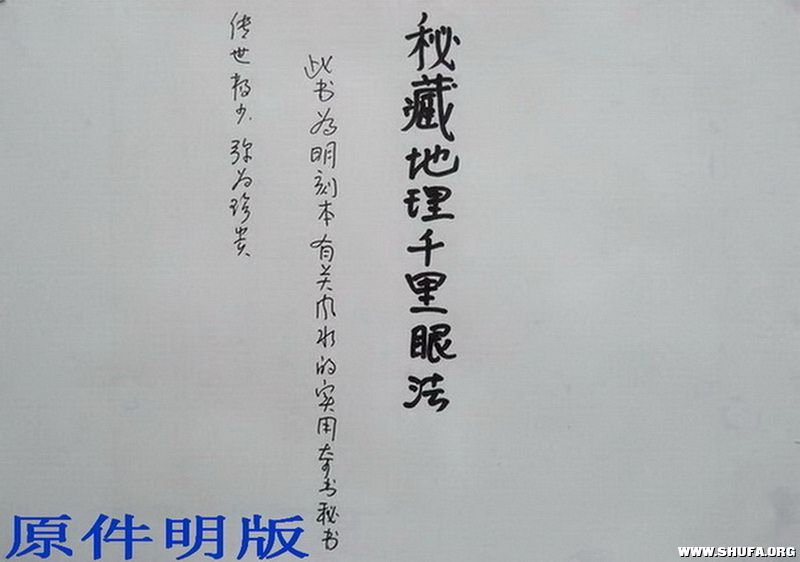 秘藏地理千里眼法
此书为明刻本有关风水的实用奇书秘书
传世极少弥为珍贵
原件明版
WWW.SHUFA.ORG